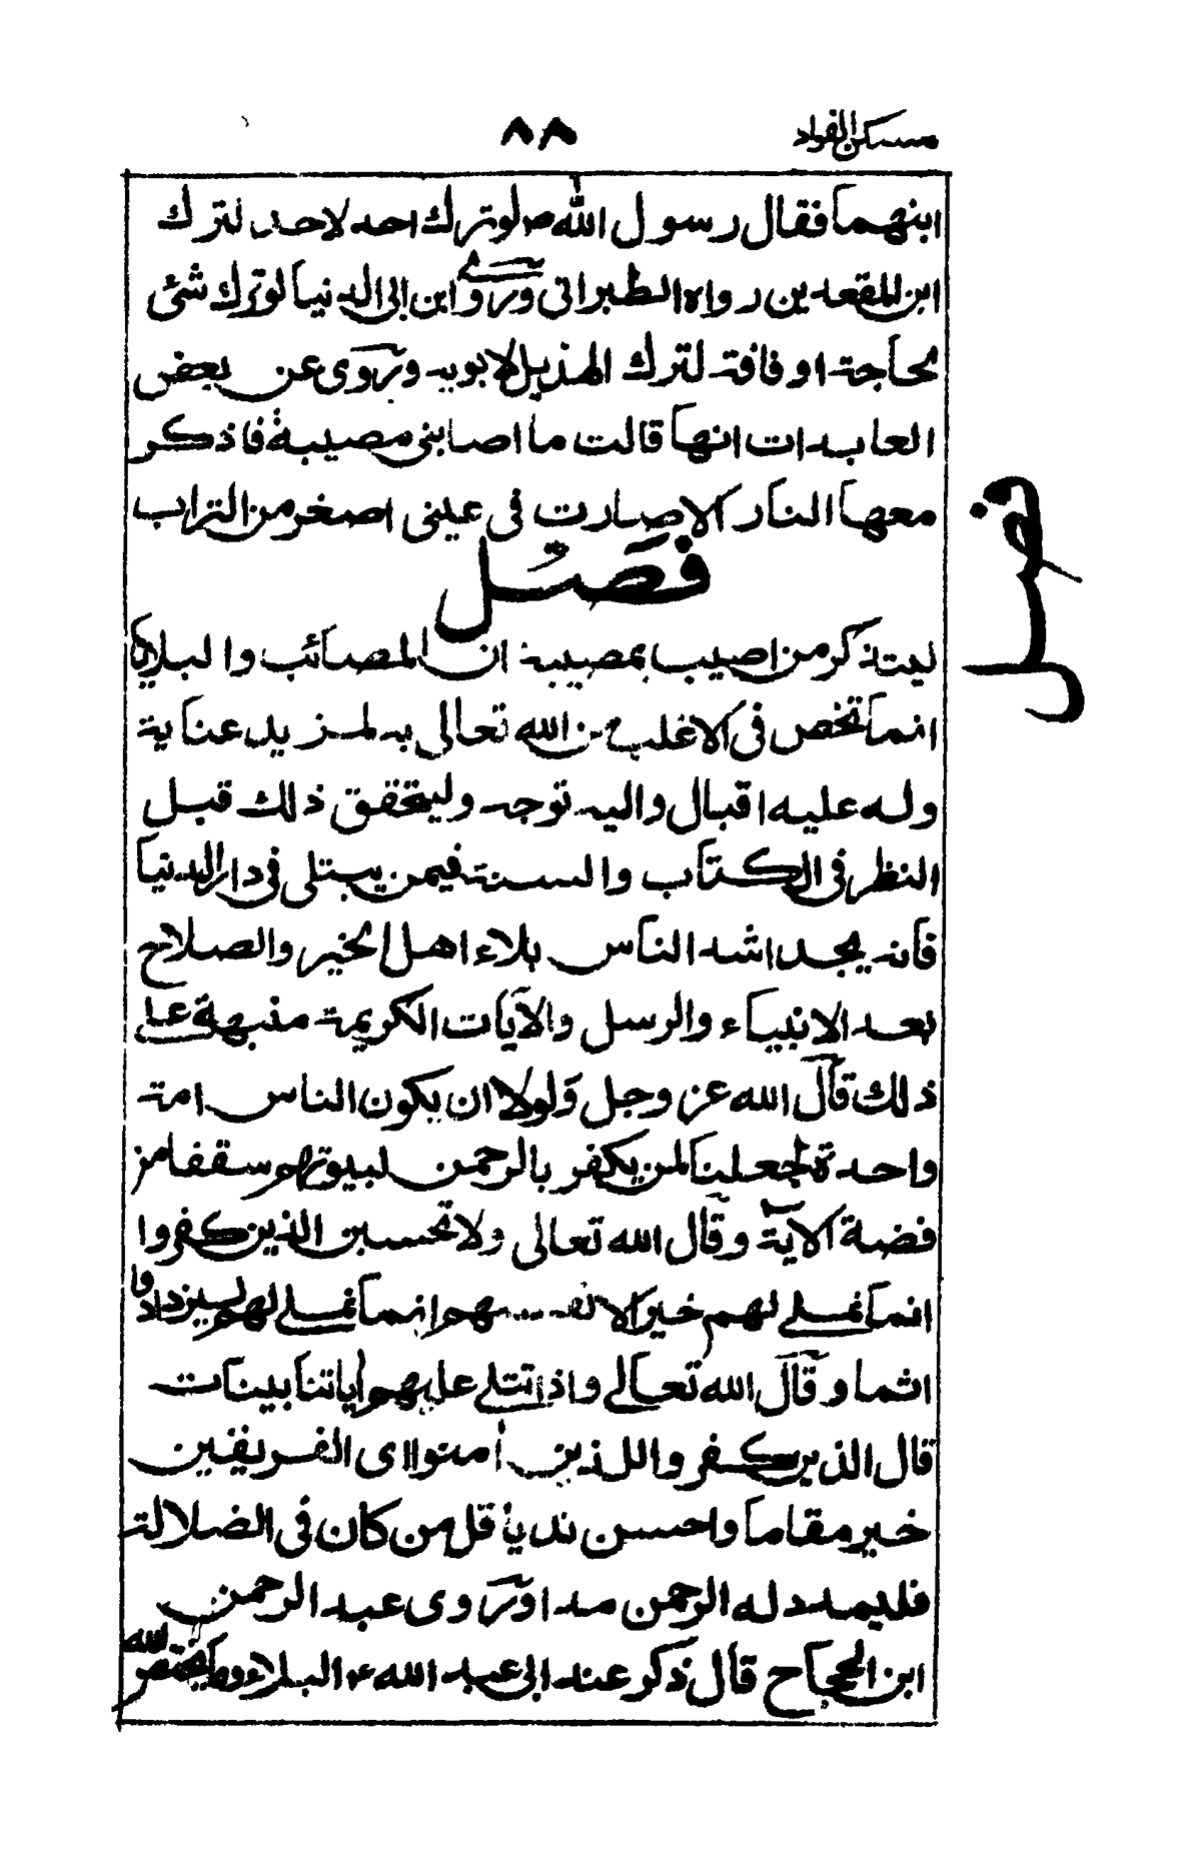 مسكن الفواد
٨٨
ابنهما فقال رسول الله ص لو ترك احد لاحد لترك
ابن المقعدين رواه الطبرانى وروى ابن ابى الدنيا لو ترك شئ
لحاجة او فاقة لترك الهذيل لابويه وروى عن بعض
العابدات انها قالت ما اصابنى مصيبة فاذكر
معها النار الا صارت فى عينى اصغر من التراب
فصل
فصل
ليتذكر من اصيب بمصيبة ان المصائب والبلايا
انما تخص فى الاغلب من الله تعالى به لمزيد عناية
وله عليه اقبال واليه توجه وليتحقق ذلك قبل
النظر فى الكتاب والسنة فيمن يبتلى فى دار الدنيا
فانه يجد اشد الناس بلاء اهل الخير والصلاح
بعد الانبياء والرسل والآيات الكريمة منبهة على
ذلك قال الله عز وجل ولولا ان يكون الناس امة
واحدة لجعلنا لمن يكفر بالرحمن لبيوتهم سقفا من
فضة الاية وقال الله تعالى ولا تحسبن الذين كفروا
انما نملى لهم خير لانفسهم انما نملى لهم ليزدادوا
اثما وقال الله تعالى واذا تتلى عليهم اياتنا بينات
قال الذين كفروا للذين امنوا اى الفريقين
خير مقاما واحسن نديا قل من كان فى الضلالة
فليمدد له الرحمن مدا وروى عبد الرحمن
ابن الحجاج قال ذكر عند ابى عبد الله ع البلاء وما يختص الله